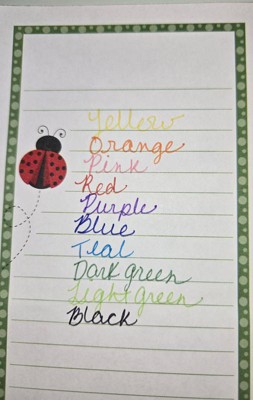 Yellow
Orange
Pink
Red
Purple
Blue
Teal
Dark green
Light green
Black